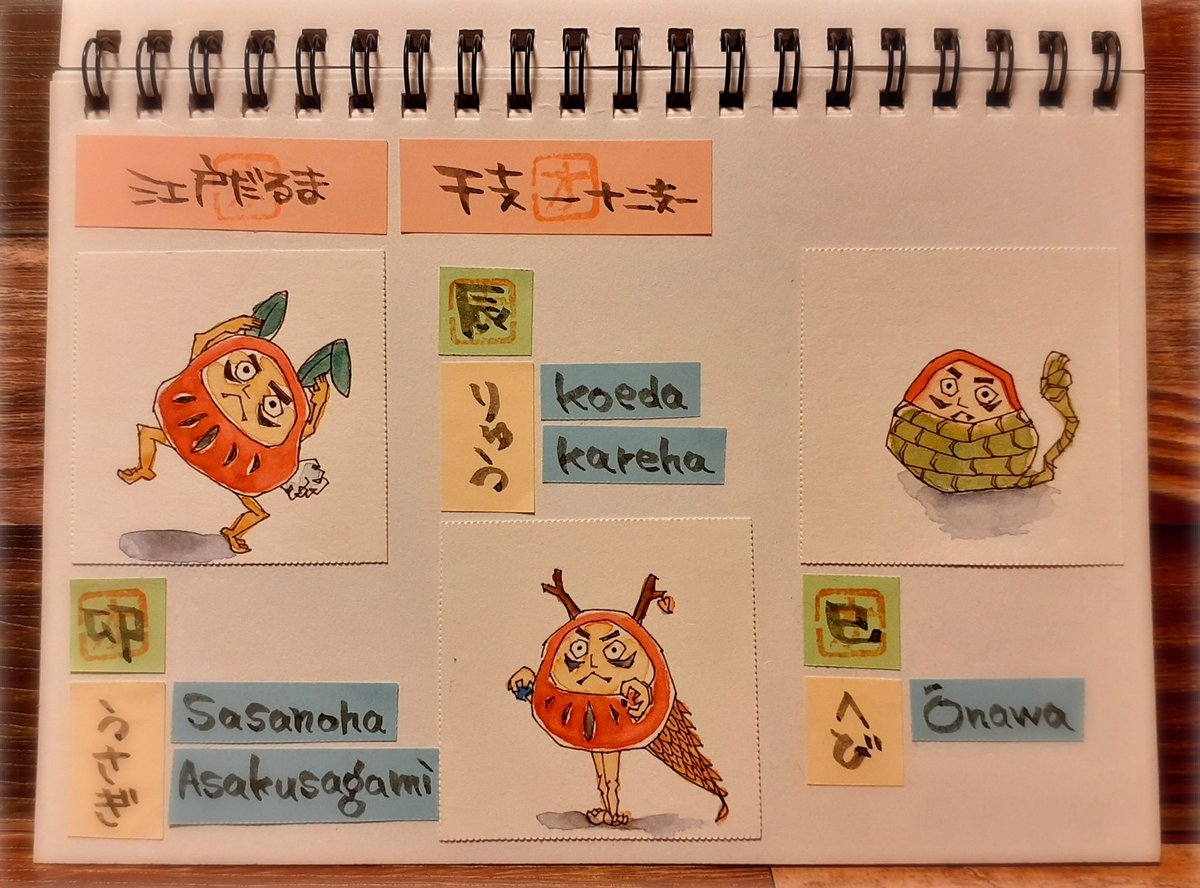 江戸だるま
干支 ー十二支ー
辰
りゅう
koeda
kareha
卯
うさぎ
Sasanoha
Asakusagami
巳
へび
Ōnawa